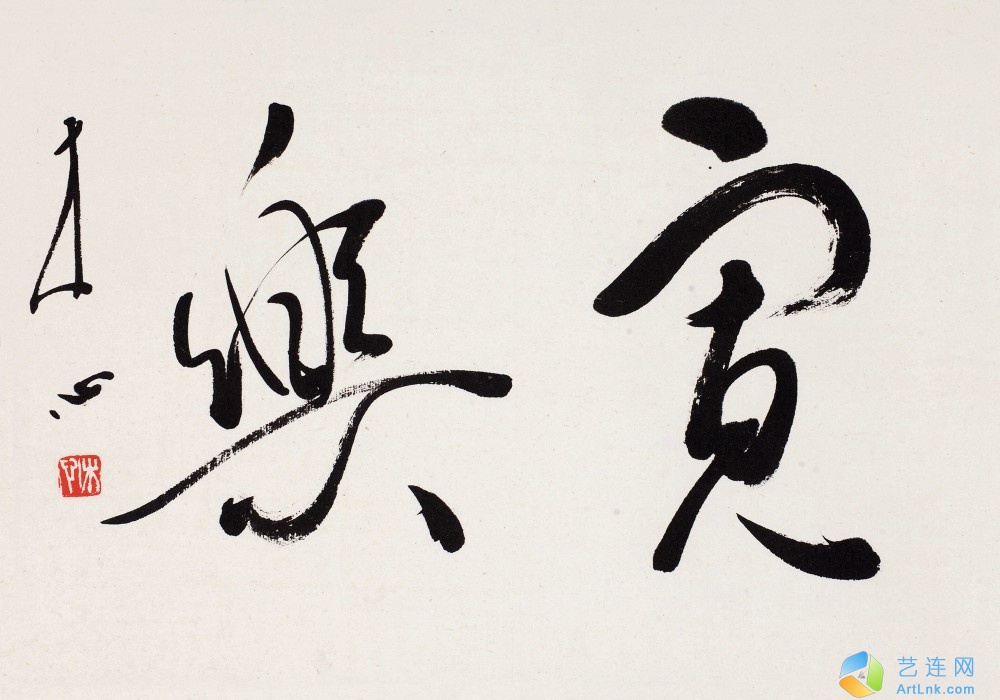 寬樂
艺连网
ArtLnk.com